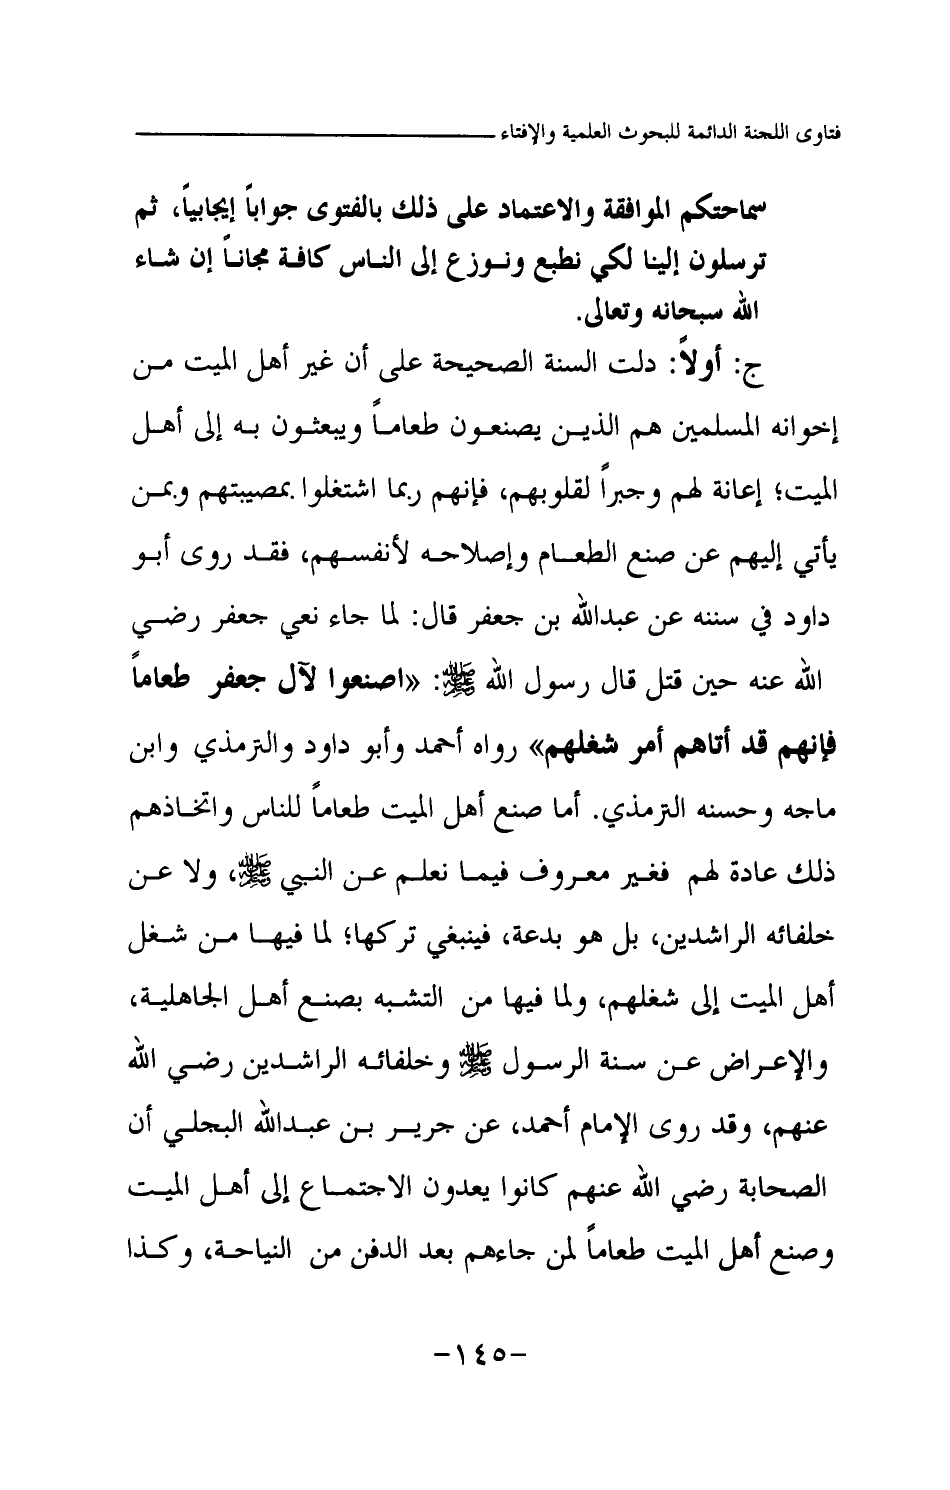 فتاوى اللجنة الدائمة للبحوث العلمية والإفتاء
سماحتكم الموافقة والاعتماد على ذلك بالفتوى جواباً إيجابياً، ثم
ترسلون إلينا لكي نطبع ونوزع إلى الناس كافة مجاناً إن شاء
الله سبحانه وتعالى.
ج: أولاً: دلت السنة الصحيحة على أن غير أهل الميت من
إخوانه المسلمين هم الذين يصنعون طعاماً ويبعثون به إلى أهل
الميت؛ إعانة لهم وجبراً لقلوبهم، فإنهم ربما اشتغلوا بمصيبتهم وبمن
يأتي إليهم عن صنع الطعام وإصلاحه لأنفسهم، فقد روى أبو
داود في سننه عن عبدالله بن جعفر قال: لما جاء نعي جعفر رضي
الله عنه حين قتل قال رسول الله ﷺ: «اصنعوا لآل جعفر طعاماً
فإنهم قد أتاهم أمر شغلهم» رواه أحمد وأبو داود والترمذي وابن
ماجه وحسنه الترمذي. أما صنع أهل الميت طعاماً للناس واتخاذهم
ذلك عادة لهم فغير معروف فيما نعلم عن النبي ﷺ، ولا عن
خلفائه الراشدين، بل هو بدعة، فينبغي تركها؛ لما فيها من شغل
أهل الميت إلى شغلهم، ولما فيها من التشبه بصنع أهل الجاهلية،
والإعراض عن سنة الرسول ﷺ وخلفائه الراشدين رضي الله
عنهم، وقد روى الإمام أحمد، عن جرير بن عبدالله البجلي أن
الصحابة رضي الله عنهم كانوا يعدون الاجتماع إلى أهل الميت
وصنع أهل الميت طعاماً لمن جاءهم بعد الدفن من النياحة، وكذا
-١٤٥-